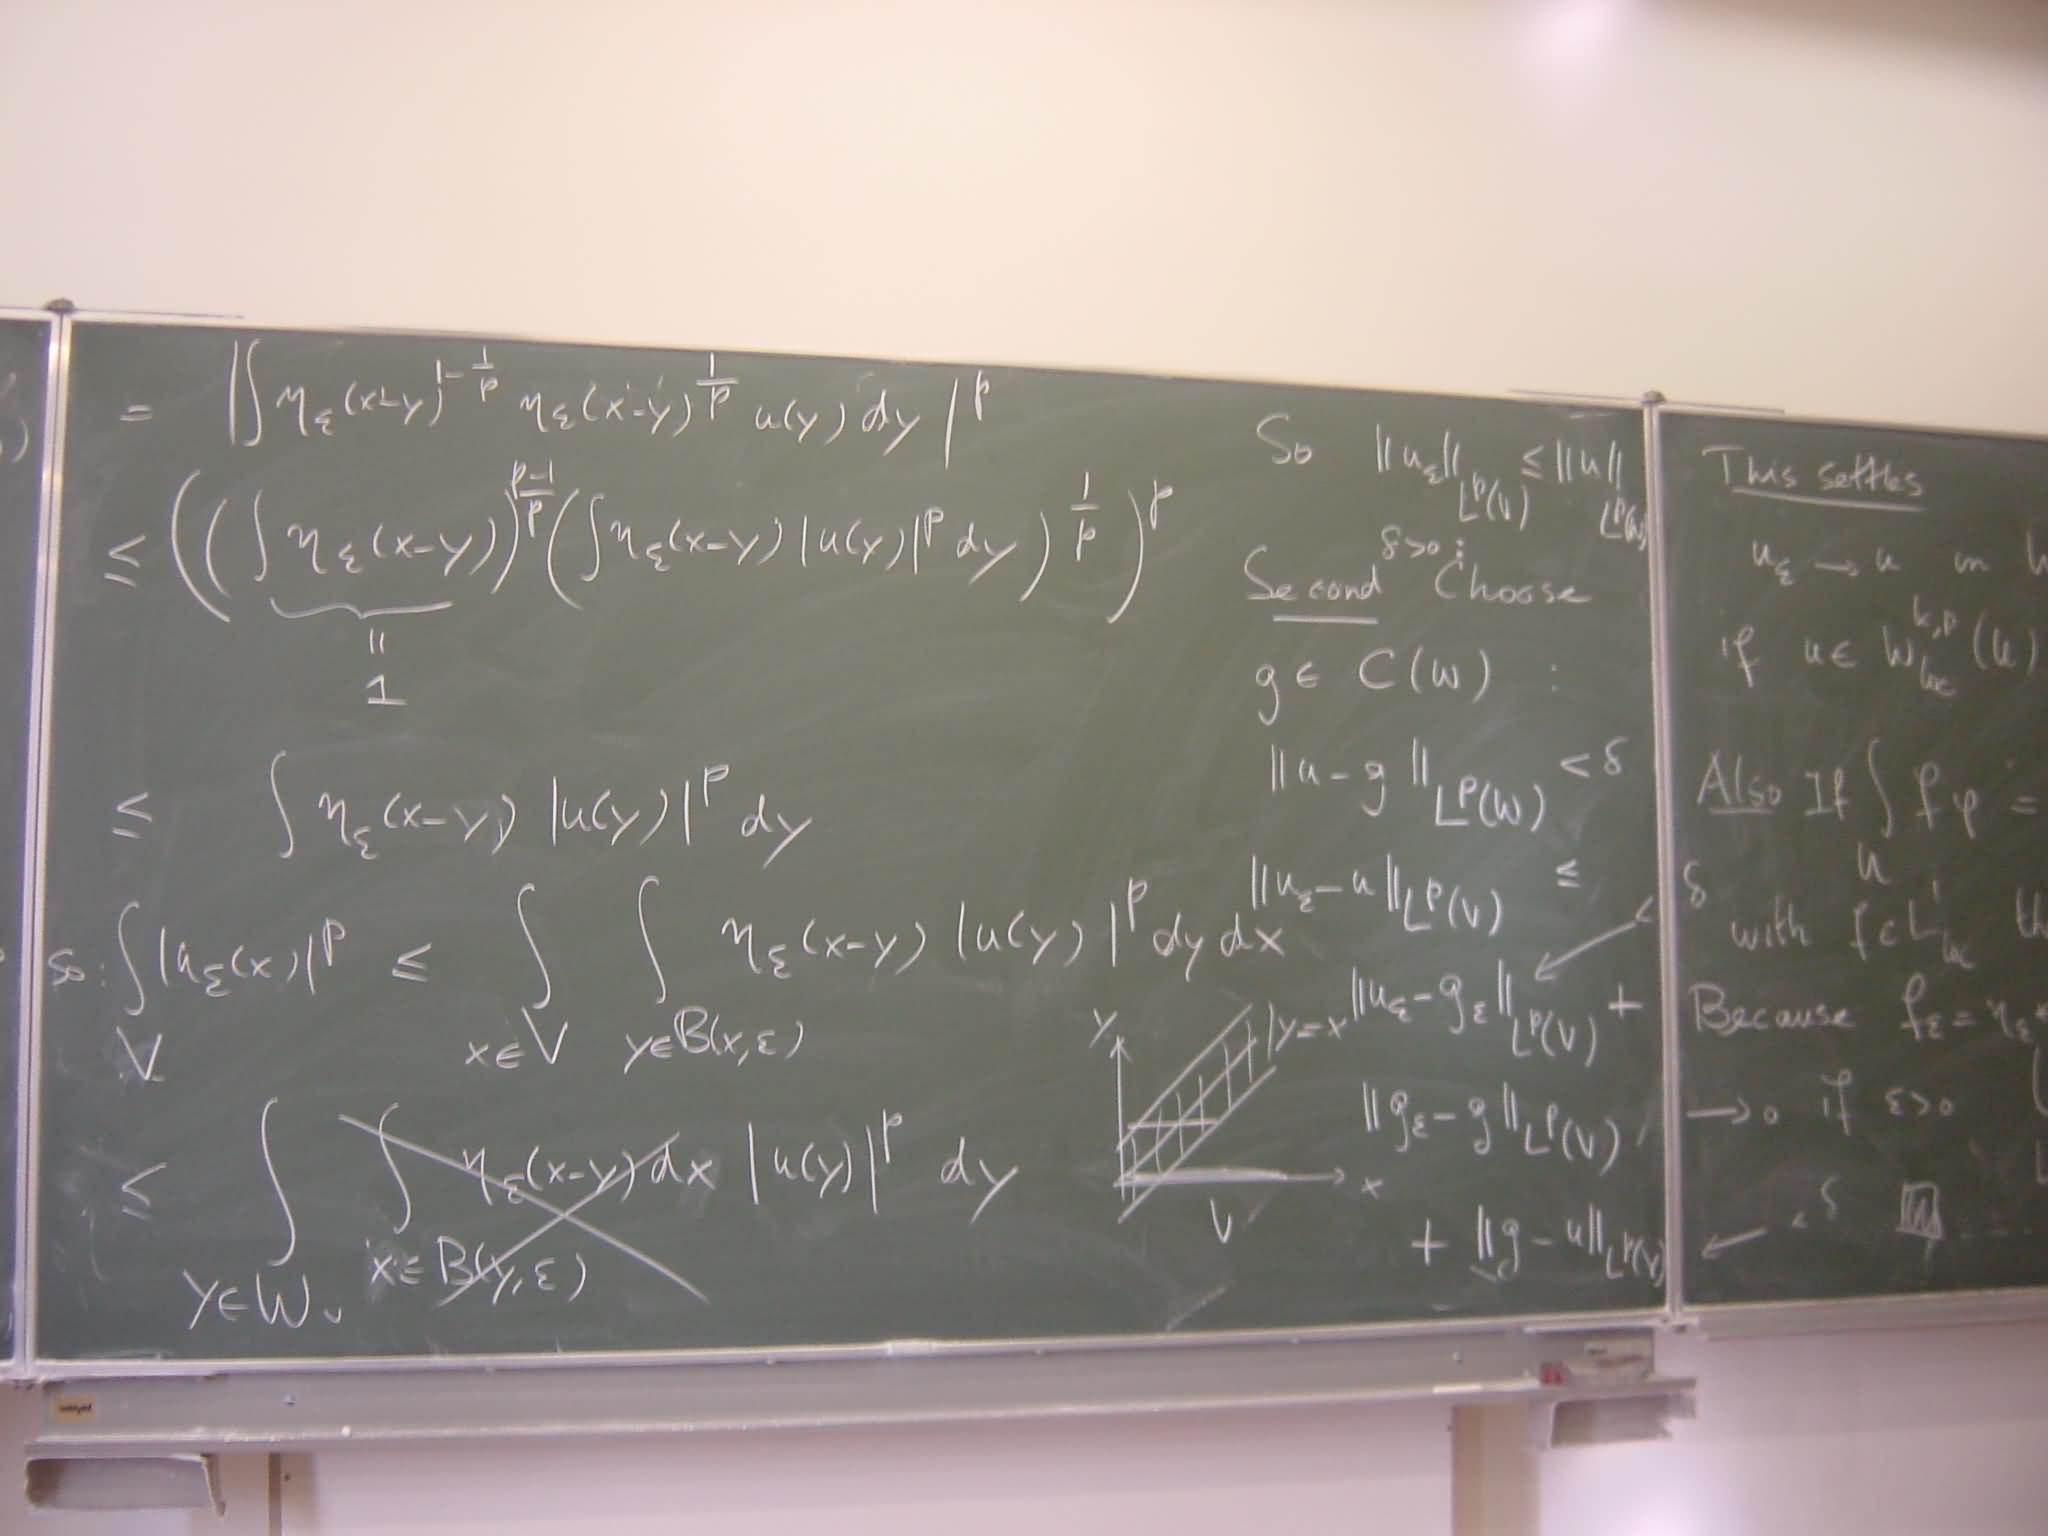 = |∫ η_ε(x-y)^{1-1/p} η_ε(x-y)^{1/p} u(y) dy|^p
≤ ((∫ η_ε(x-y))^{p-1/p} (∫ η_ε(x-y) |u(y)|^p dy)^{1/p})^p
=
1
≤ ∫ η_ε(x-y) |u(y)|^p dy
so: ∫_V |u_ε(x)|^p ≤ ∫_{x∈V} ∫_{y∈B(x,ε)} η_ε(x-y) |u(y)|^p dy dx
≤ ∫_{y∈W} ∫_{x∈B(y,ε)} η_ε(x-y) dx |u(y)|^p dy
y
y=x
x
V
So ||u_ε||_{L^p(V)} ≤ ||u||_{L^p(W)}
δ>0 :
Second Choose
g ∈ C(W) :
||u-g||_{L^p(W)} < δ
||u_ε-u||_{L^p(V)} ≤
< δ
||u_ε-g_ε||_{L^p(V)} +
||g_ε-g||_{L^p(V)}
+ ||g-u||_{L^p(V)}
This settles
u_ε → u in
if u ∈ W^{k,p}_{loc}(U)
Also If ∫_U f φ =
with f ∈ L^1_{loc}
Because f_ε = η_ε *
→ 0 if ε>0
< δ